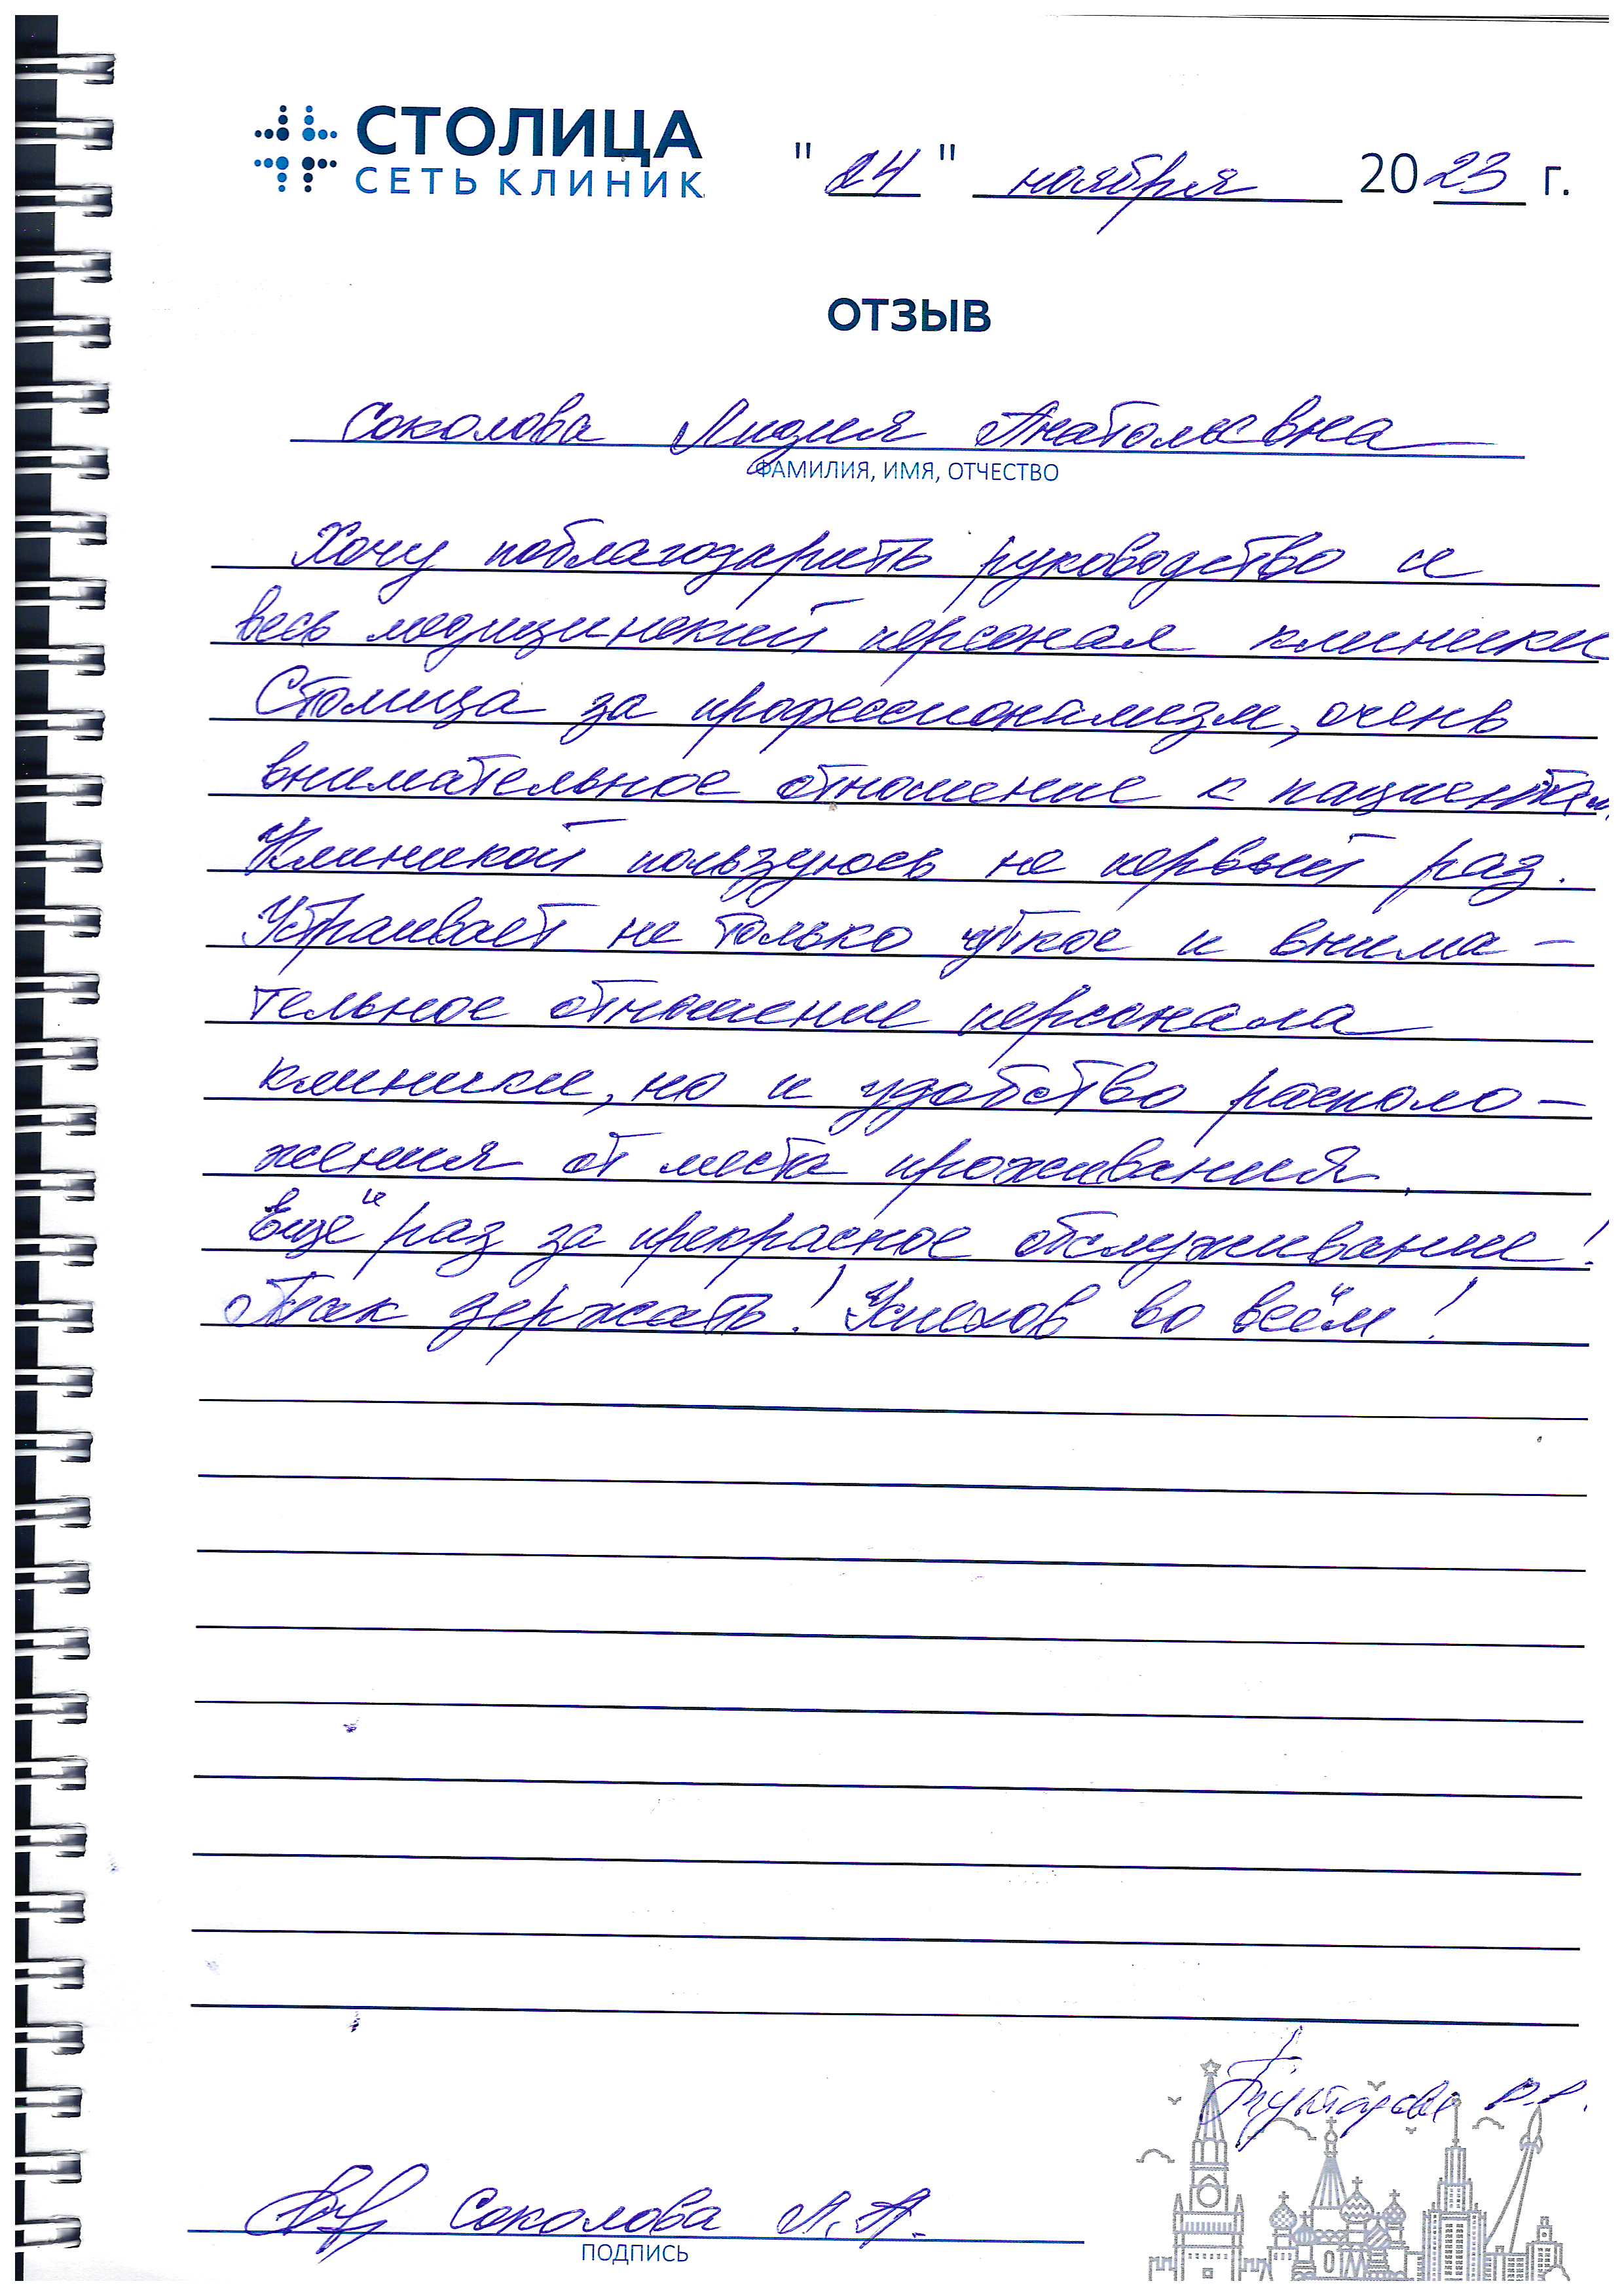 СТОЛИЦА
СЕТЬ КЛИНИК
"24" ноября 2023 г.
ОТЗЫВ
Соколова Лидия Анатольевна
ФАМИЛИЯ, ИМЯ, ОТЧЕСТВО
Хочу поблагодарить руководство и
весь медицинский персонал клиники
Столица за профессионализм, очень
внимательное отношение к пациентам.
Клиникой пользуюсь не первый раз.
Устраивает не только чуткое и внима-
тельное отношение персонала
клиники, но и удобство располо-
жения от места проживания.
Ещё раз за прекрасное обслуживание!
Так держать! Успехов во всём!
Соколова Л.А.
ПОДПИСЬ